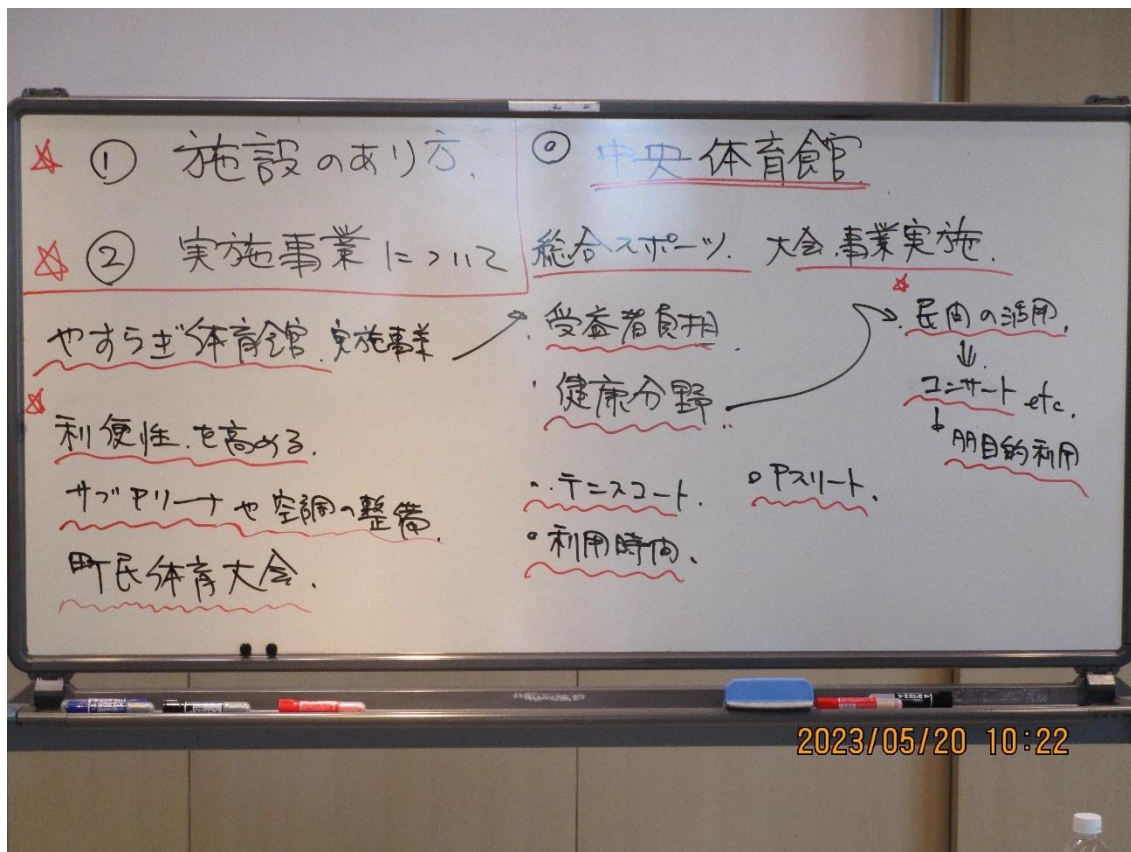 ☆ ① 施設のあり方.
☆ ② 実施事業について
やすらぎ体育館.実施事業
☆
利便性.を高める.
サブアリーナや空調の整備.
町民体育大会.
◎ 中央体育館
総合スポーツ. 大会.事業実施.
・受益者負担.
・健康分野
・テニスコート.
○アスリート.
○利用時間.
☆
・民間の活用.
⇓
コンサート etc.
↓
目的利用
2023/05/20 10:22